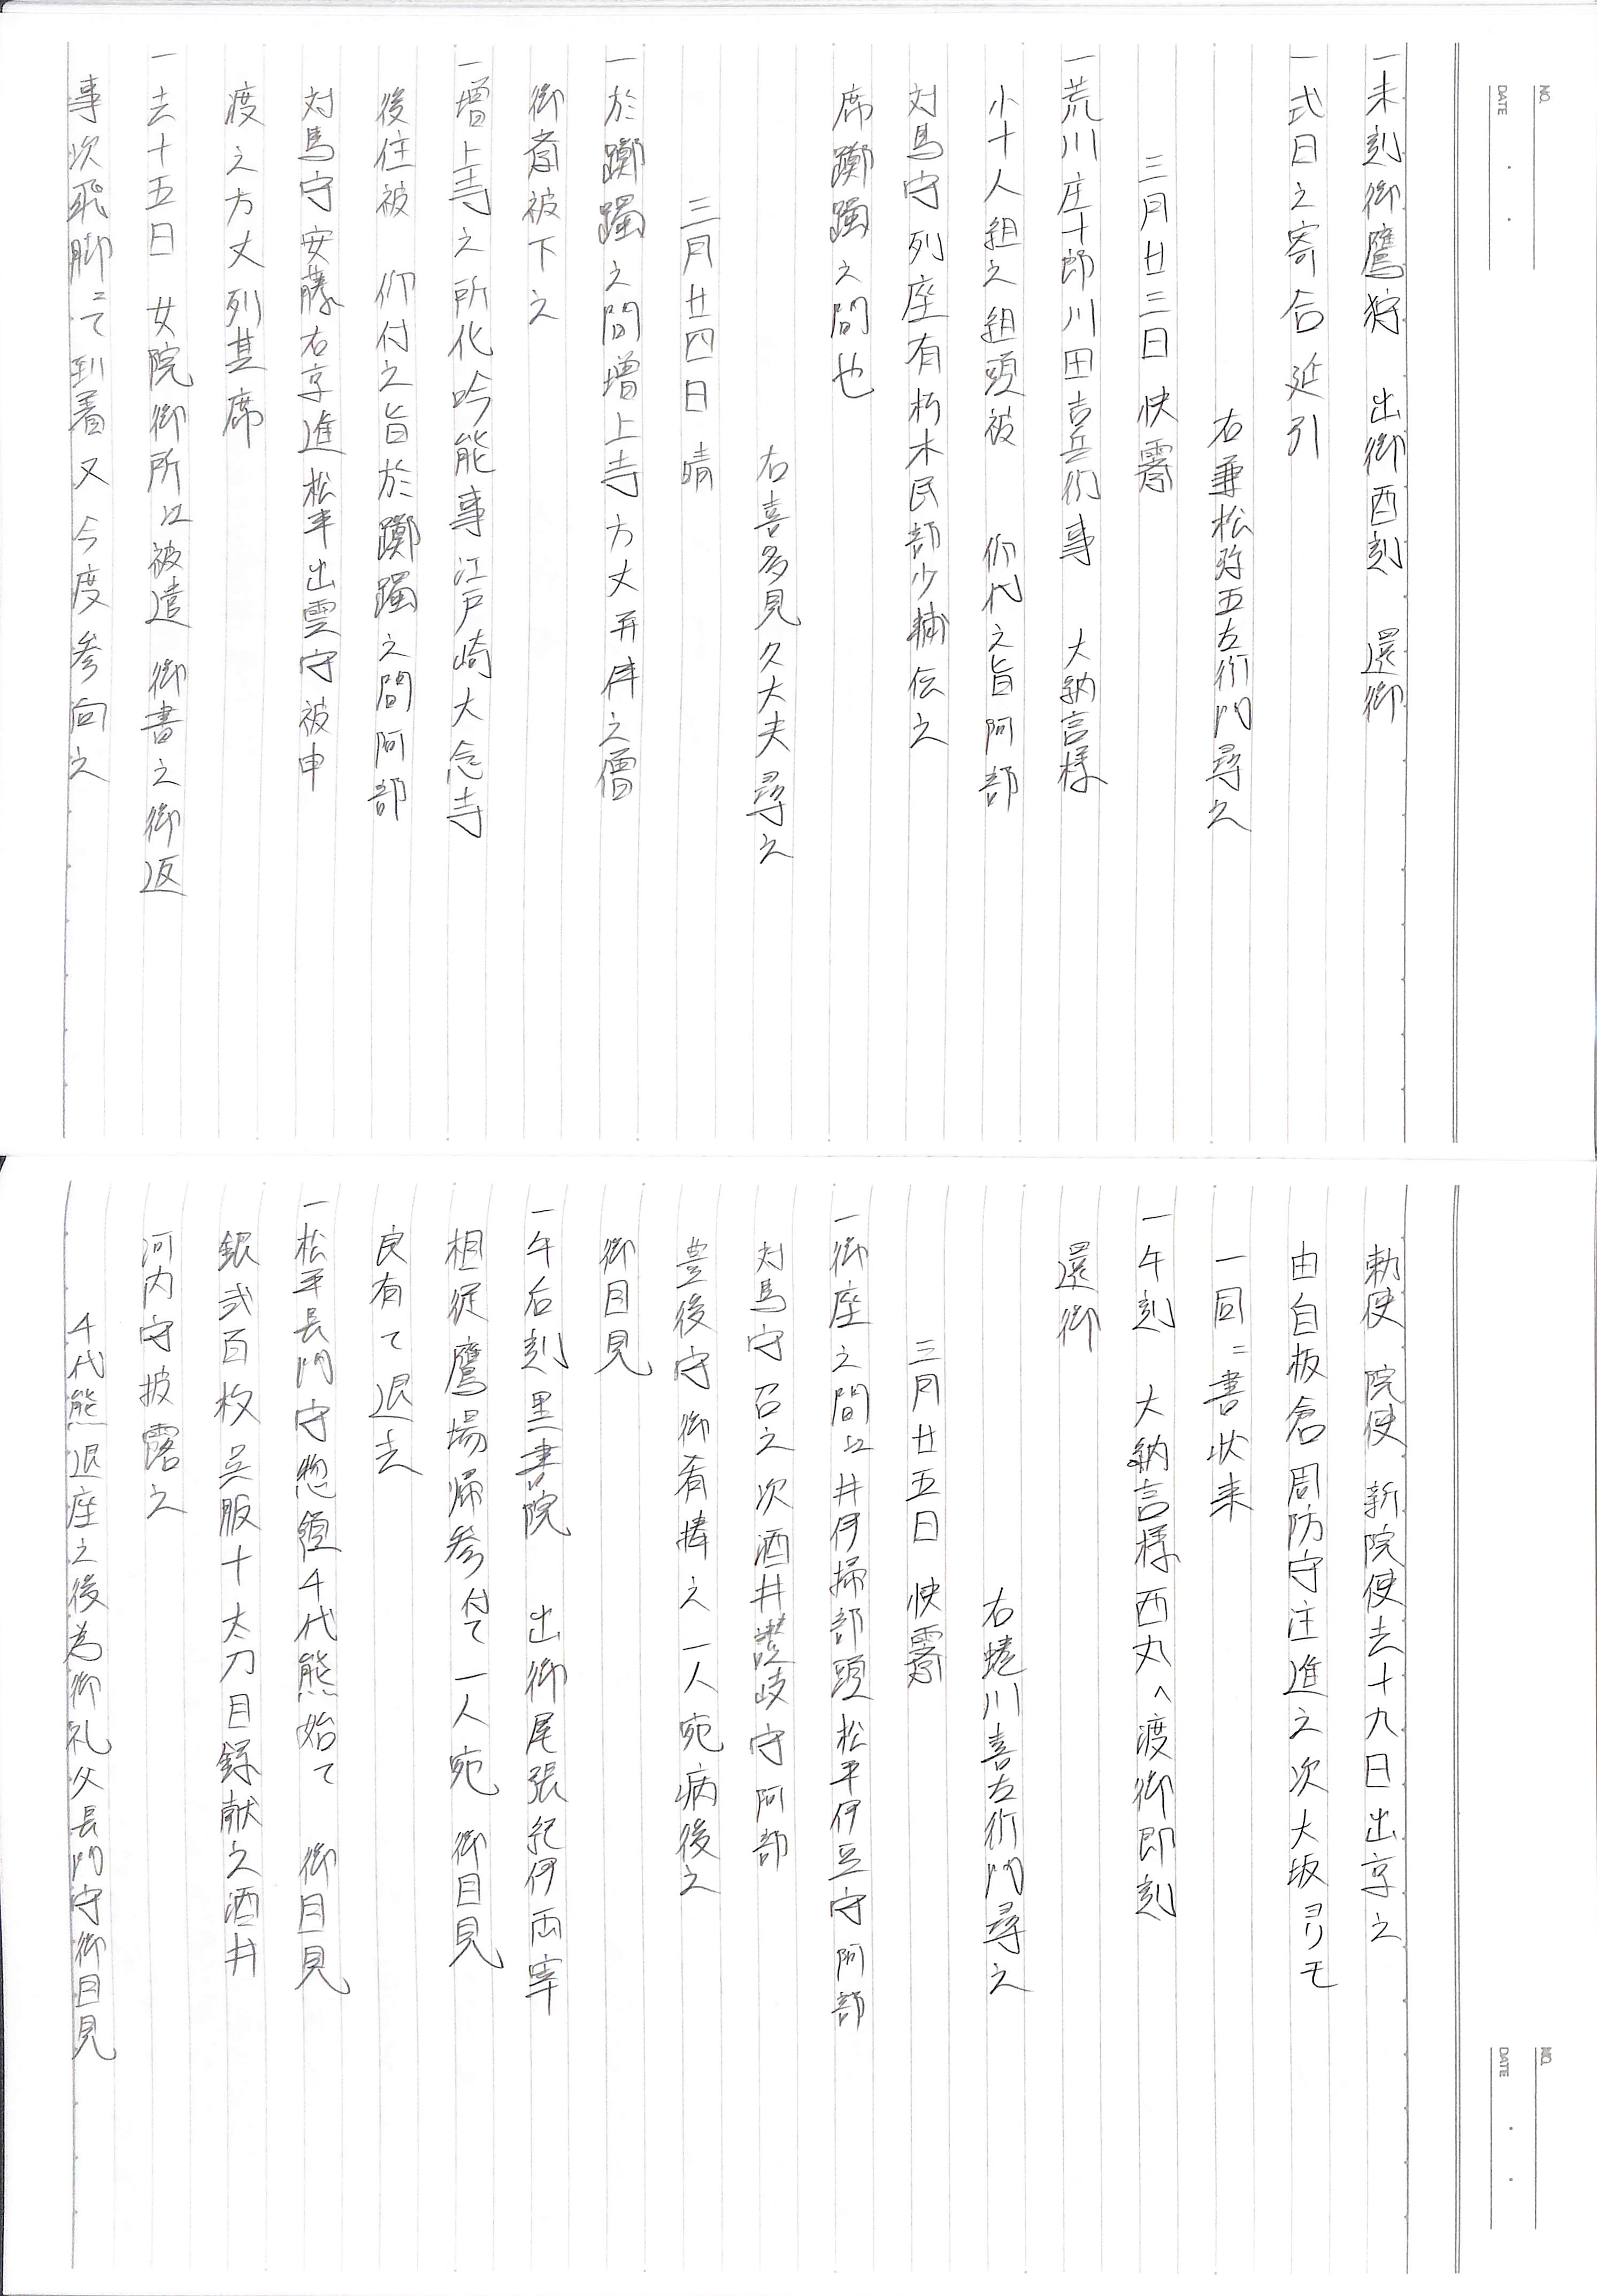 NO.
DATE
一未刻御鷹狩　出御酉刻　還御
一式日之寄合延引
右兼松弥五左衛門尋之
三月廿三日　快霽
一荒川庄十郎川田吉兵衛事　大納言様
小十人組之組頭被　仰代之旨阿部
対馬守列座有朽木民部少輔伝之
席躑躅之間也
右喜多見久大夫尋之
三月廿四日　晴
一於躑躅之間増上寺方丈并伴之僧
御斎被下之
一増上寺之所化吟能事江戸崎大念寺
後住被　仰付之旨於躑躅之間阿部
対馬守安藤右京進松平出雲守被申
渡之方丈列其席
一去十五日　女院御所江被遣　御書之御返
事次飛脚ニて到着又今度参向之
勅使　院使　新院使去十九日出京之
由自板倉周防守注進之次大坂ヨリモ
一同ニ書状来
一午刻　大納言様西丸へ渡御即刻
還御
右蜷川喜左衛門尋之
三月廿五日　快霽
一御座之間江井伊掃部頭松平伊豆守阿部
対馬守召之次酒井讃岐守阿部
豊後守御肴捧之一人宛病後之
御目見
一午后刻黒書院　出御尾張紀伊両宰
相従鷹場帰参付て一人宛　御目見
良有て退去
一松平長門守惣領千代熊始て　御目見
銀弐百枚呉服十太刀目録献之酒井
河内守披露之
千代熊退座之後為御礼父長門守御目見
NO.
DATE